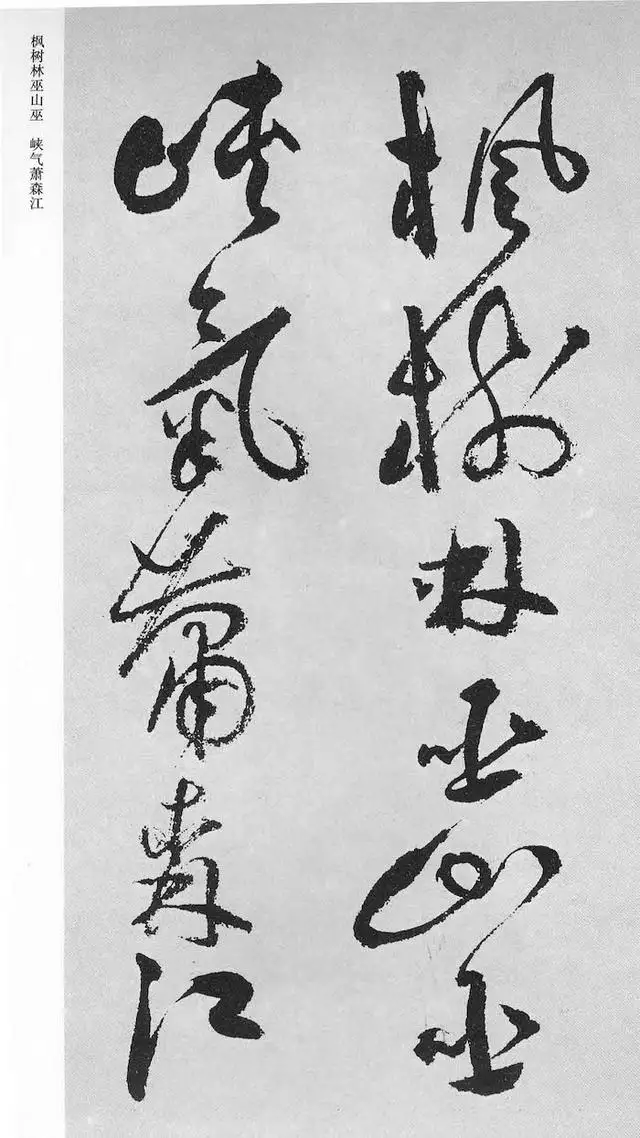 枫樹林巫山巫
峡氣蕭森江
枫树林巫山巫 峡气萧森江